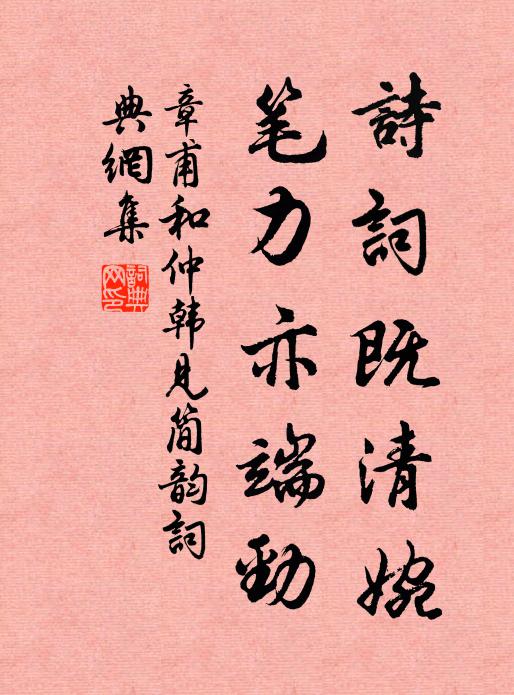 詩詞既清婉
笔力亦端勁
章甫和仲韩見简韵詞
典網集
詞典网印